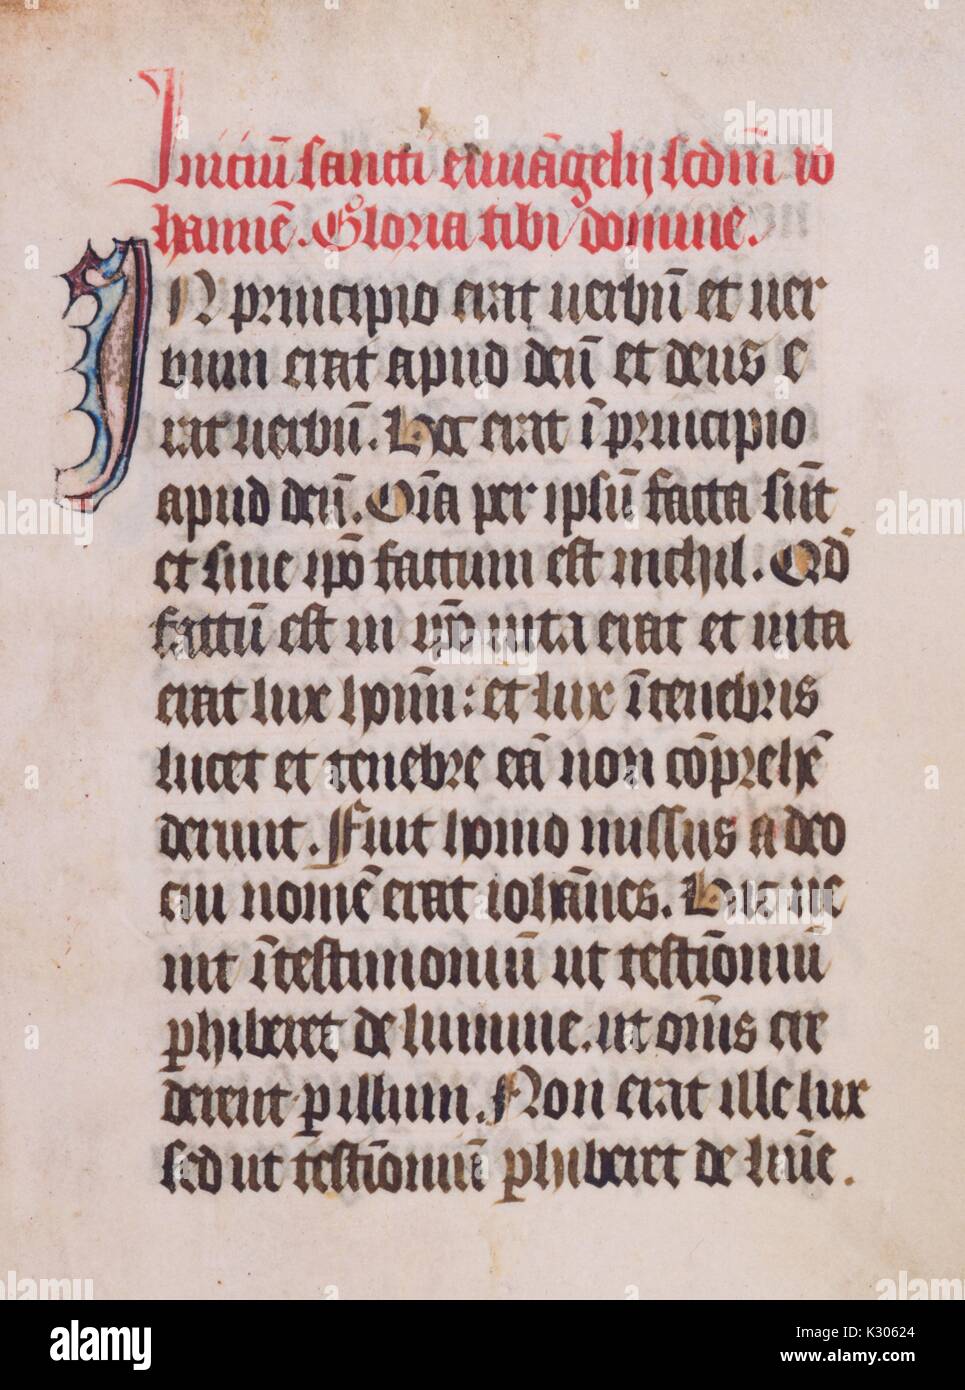 Iniciū sancti ewāgelij scdm̄ io
hannē. Gloria tibi domine.
IN principio erat uerbū et uer
bum erat apud deū et deus e
rat uerbū. Hoc erat ī principio
apud deū. Oīa per ipsū facta sūt
et sine ip̄o factum est nichil. Qd̄
factū est in ip̄o uita erat et uita
erat lux hoīm̄: et lux ī tenebris
lucet et tenebre eā non cōprehē
derunt. Fuit homo missus a deo
cui nomē erat iohānes. Hic ue
nit ī testimoniū ut testīoniū
ꝑhiberet de lumine. ut om̄s cre
derent ꝑ illum. Non erat ille lux
sed ut testīoniū ꝑhiberet de lūīe.
alamy
K30624
www.alamy.com